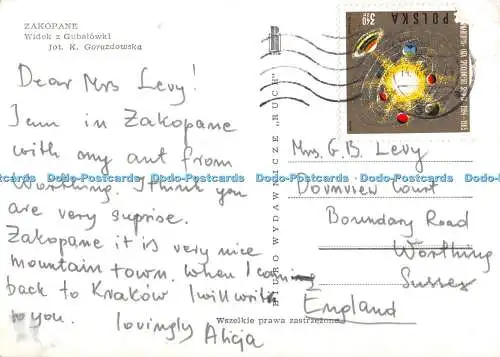 ZAKOPANE
Widok z Gubałówki
fot. K. Gorazdowska
Dear Mrs Levy!
I em in Zakopane
with my ant from
Worthing. I think you
are very suprise.
Zakopane it is very nice
mountain town. When I coming
back to Kraków I will write
to you. lovingly Alicja
BIURO WYDAWNICZE „RUCH"
Wszelkie prawa zastrzeżone
3,40
ZŁ
POLSKA
Mrs. G. B. Levy
Downview Court
Boundary Road
Worthing
Sussex
England
Dodo-Postcards Dodo-Postcards Dodo-Postcards Dodo-Postcards Dodo-Postcards